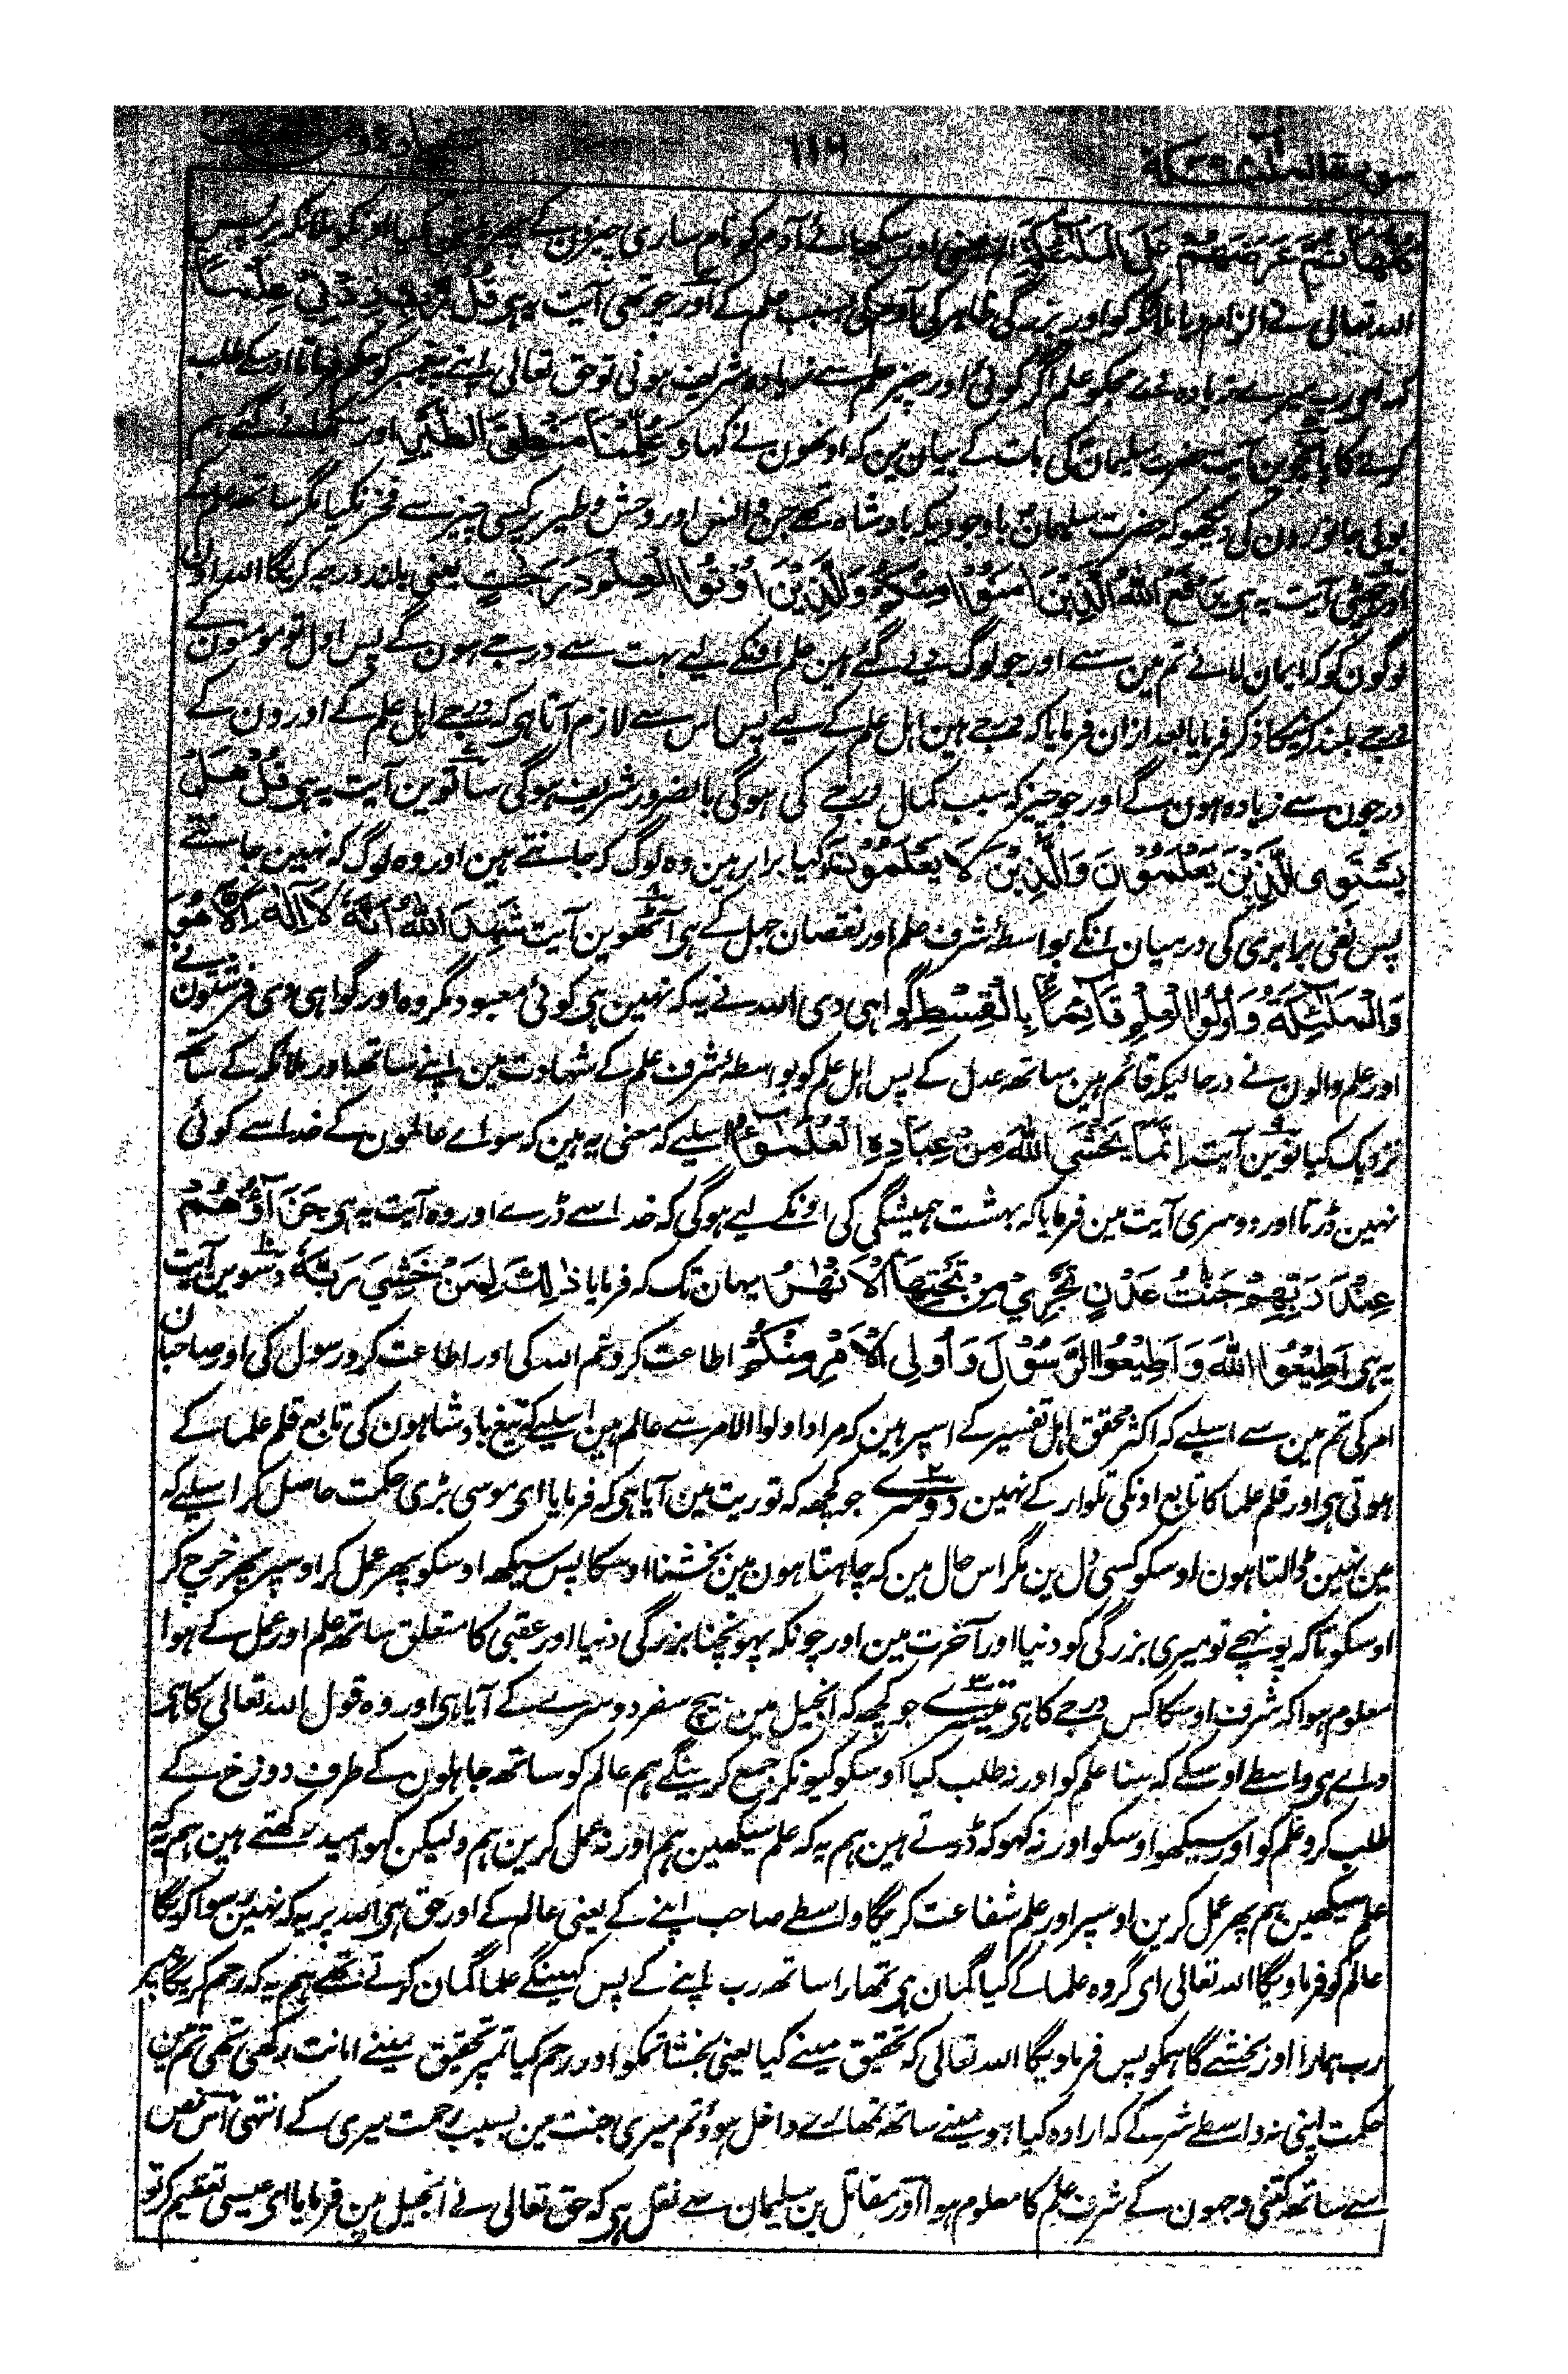 ۱۱۶
كُلَّهَا ثُمَّ عَرَضَهُمْ عَلَى الْمَلٰٓئِكَةِ اور سکھائے آدم کو نام ساری چیزون کے پھر کیا اونکو ملائکہ پر پس
اللہ تعالی نے الزام دیا ملائکہ کو اور بزرگی ظاہر کی آدم کی بسبب علم کے اور چوتھی آیت یہ ہی قُلْ رَّبِّ زِدْنِيْ عِلْمًا
کہ ای رب میرے زیادہ دے مجکو علم اگر کوئی اور چیز علم سے زیادہ شریف ہوتی تو حق تعالی اپنے پیغمبر کو حکم فرماتا اوسکے طلب
کرنے کا پانچوین آیت حضرت سلیمان کی بات کے بیان مین کہ اونھون نے کہا وَ عُلِّمْنَا مَنْطِقَ الطَّيْرِ اور سکھلائے گئے ہم
بولی جانورون کی دیکھو کہ حضرت سلیمان باوجودیکہ بادشاہ تھے جن و انس اور وحش و طیر پر کسی چیز سے فخر نکیا مگر ساتھ علم کے
اور چھٹی آیت یہ ہی يَرْفَعِ اللّٰهُ الَّذِيْنَ اٰمَنُوْا مِنْكُمْ وَالَّذِيْنَ اُوْتُوا الْعِلْمَ دَرَجٰتٍ یعنی بلند درجہ کریگا اللہ اون
لوگون کو کہ ایمان لائے تم مین سے اور جو لوگ دیے گئے ہین علم اونکے لیے بہت سے درجے ہون گے پس اول تو مومنون کے
درجے بلند کرنیکا ذکر فرمایا بعد ازان فرمایا کہ درجے ہین اہل علم کے لیے پس اس سے لازم آتا ہی کہ درجے اہل علم کے اورون کے
درجون سے زیادہ ہون گے اور جو چیز کہ سبب کمال درجے کی ہوگی بالضرور شریف ہوگی ساتوین آیت یہ ہی قُلْ هَلْ
يَسْتَوِى الَّذِيْنَ يَعْلَمُوْنَ وَالَّذِيْنَ لَا يَعْلَمُوْنَ کیا برابر ہین وہ لوگ کہ جانتے ہین اور وہ لوگ کہ نہین جانتے
پس نفی برابری کی درمیان انکے بواسطۂ شرف علم اور نقصان جہل کے ہی آٹھوین آیت شَهِدَ اللّٰهُ اَنَّهٗ لَآ اِلٰهَ اِلَّا هُوَ
وَالْمَلٰٓئِكَةُ وَاُولُوا الْعِلْمِ قَآئِمًا بِالْقِسْطِ گواہی دی اللہ نے یہ کہ نہین ہی کوئی معبود مگر وہ اور گواہی دی فرشتون نے
اور علم والون نے درحالیکہ قائم ہین ساتھ عدل کے پس اہل علم کو بواسطۂ شرف علم کے شہادت مین اپنے ساتھ اور ملائکہ کے ساتھ
نزدیک کیا نوین آیت اِنَّمَا يَخْشَى اللّٰهَ مِنْ عِبَادِهِ الْعُلَمٰٓؤُا اسلیے کہ معنی یہ ہین کہ سواے عالمون کے خدا سے کوئی
نہین ڈرتا اور دوسری آیت مین فرمایا کہ بہشت ہمیشگی کی اونکے لیے ہوگی کہ خدا سے ڈرے اور وہ آیت یہ ہی جَزَآؤُهُمْ
عِنْدَ رَبِّهِمْ جَنّٰتُ عَدْنٍ تَجْرِيْ مِنْ تَحْتِهَا الْاَنْهٰرُ یہان تک کہ فرمایا ذٰلِكَ لِمَنْ خَشِيَ رَبَّهٗ دسوین آیت
یہ ہی اَطِيْعُوا اللّٰهَ وَ اَطِيْعُوا الرَّسُوْلَ وَ اُولِى الْاَمْرِ مِنْكُمْ اطاعت کرو تم اللہ کی اور اطاعت کرو رسول کی اور صاحبان
امر کی تم مین سے اسلیے کہ اکثر محقق اہل تفسیر کے اسپر ہین کہ مراد اولوا الامر سے عالم ہین اسلیے کہ تیغ بادشاہون کی تابع قلم علما کے
ہوتی ہی اور قلم علما کا تابع اونکی تلوار کے نہین دوسرے جو کچھ کہ توریت مین آیا ہی کہ فرمایا ای موسی بڑی حکمت حاصل کر اسلیے کہ
مین نہین ڈالتا ہون اوسکو کسی دل مین مگر اس حال مین کہ چاہتا ہون مین بخشنا اوسکا پس سیکھ اوسکو پھر عمل کر اوسپر پھر خرچ کر
اوسکو تاکہ پونہچے تو میری بزرگی کو دنیا اور آخرت مین اور چونکہ پہونچنا بزرگی دنیا اور عقبی کا متعلق ساتھ علم اور عمل کے ہوا
معلوم ہوا کہ شرف اوسکا کس درجے کا ہی تیسرے جو کچھ کہ انجیل مین بیچ سفر دوسرے کے آیا ہی اور وہ قول اللہ تعالی کا ہی
واے ہی واسطے اوسکے کہ سنا علم کو اور نہ طلب کیا اوسکو کیونکر جمع کرینگے ہم عالم کو ساتھ جاہلون کے طرف دوزخ کے
طلب کرو علم کو اور سیکھو اوسکو اور نہ کہو کہ ڈرتے ہین ہم یہ کہ علم سیکھین ہم اور نہ عمل کرین ہم ولیکن کہو امید رکھتے ہین ہم یہ کہ
علم سیکھین ہم پھر عمل کرین اوسپر اور علم شفاعت کریگا واسطے صاحب اپنے کے یعنی عالم کے اور حق ہی اللہ پر یہ کہ نہین رسوا کریگا
عالم کو فرماویگا اللہ تعالی ای گروہ علما کے کیا گمان ہی تمھارا ساتھ رب اپنے کے پس کہینگے علما گمان کرتے تھے ہم یہ کہ رحم کریگا ہمپر
رب ہمارا اور بخشے گا ہمکو پس فرماویگا اللہ تعالی کہ تحقیق مینے کیا یعنی بخشا تمکو اور رحم کیا تمپر تحقیق مینے امانت رکھی تھی تم مین
حکمت اپنی نہ واسطے شر کے کہ ارادہ کیا ہو مینے ساتھ تمھارے داخل ہوؤ تم میری جنت مین بسبب رحمت میری کے انتہی اس نص
سے ساتھ کتنی وجہون کے شرف علم کا معلوم ہوا اور مقاتل بن سلیمان سے نقل ہی کہ حق تعالی نے انجیل مین فرمایا ای عیسی تعظیم کر تو